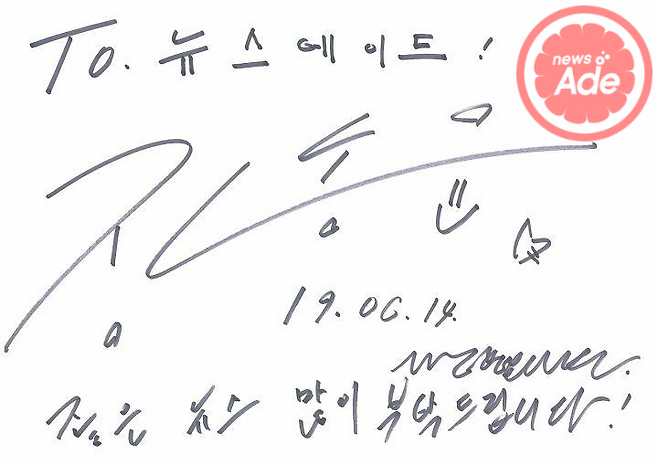 To. 뉴스에이드!
news
Ade
19.06.14.
좋은 뉴스 많이 부탁드립니다!